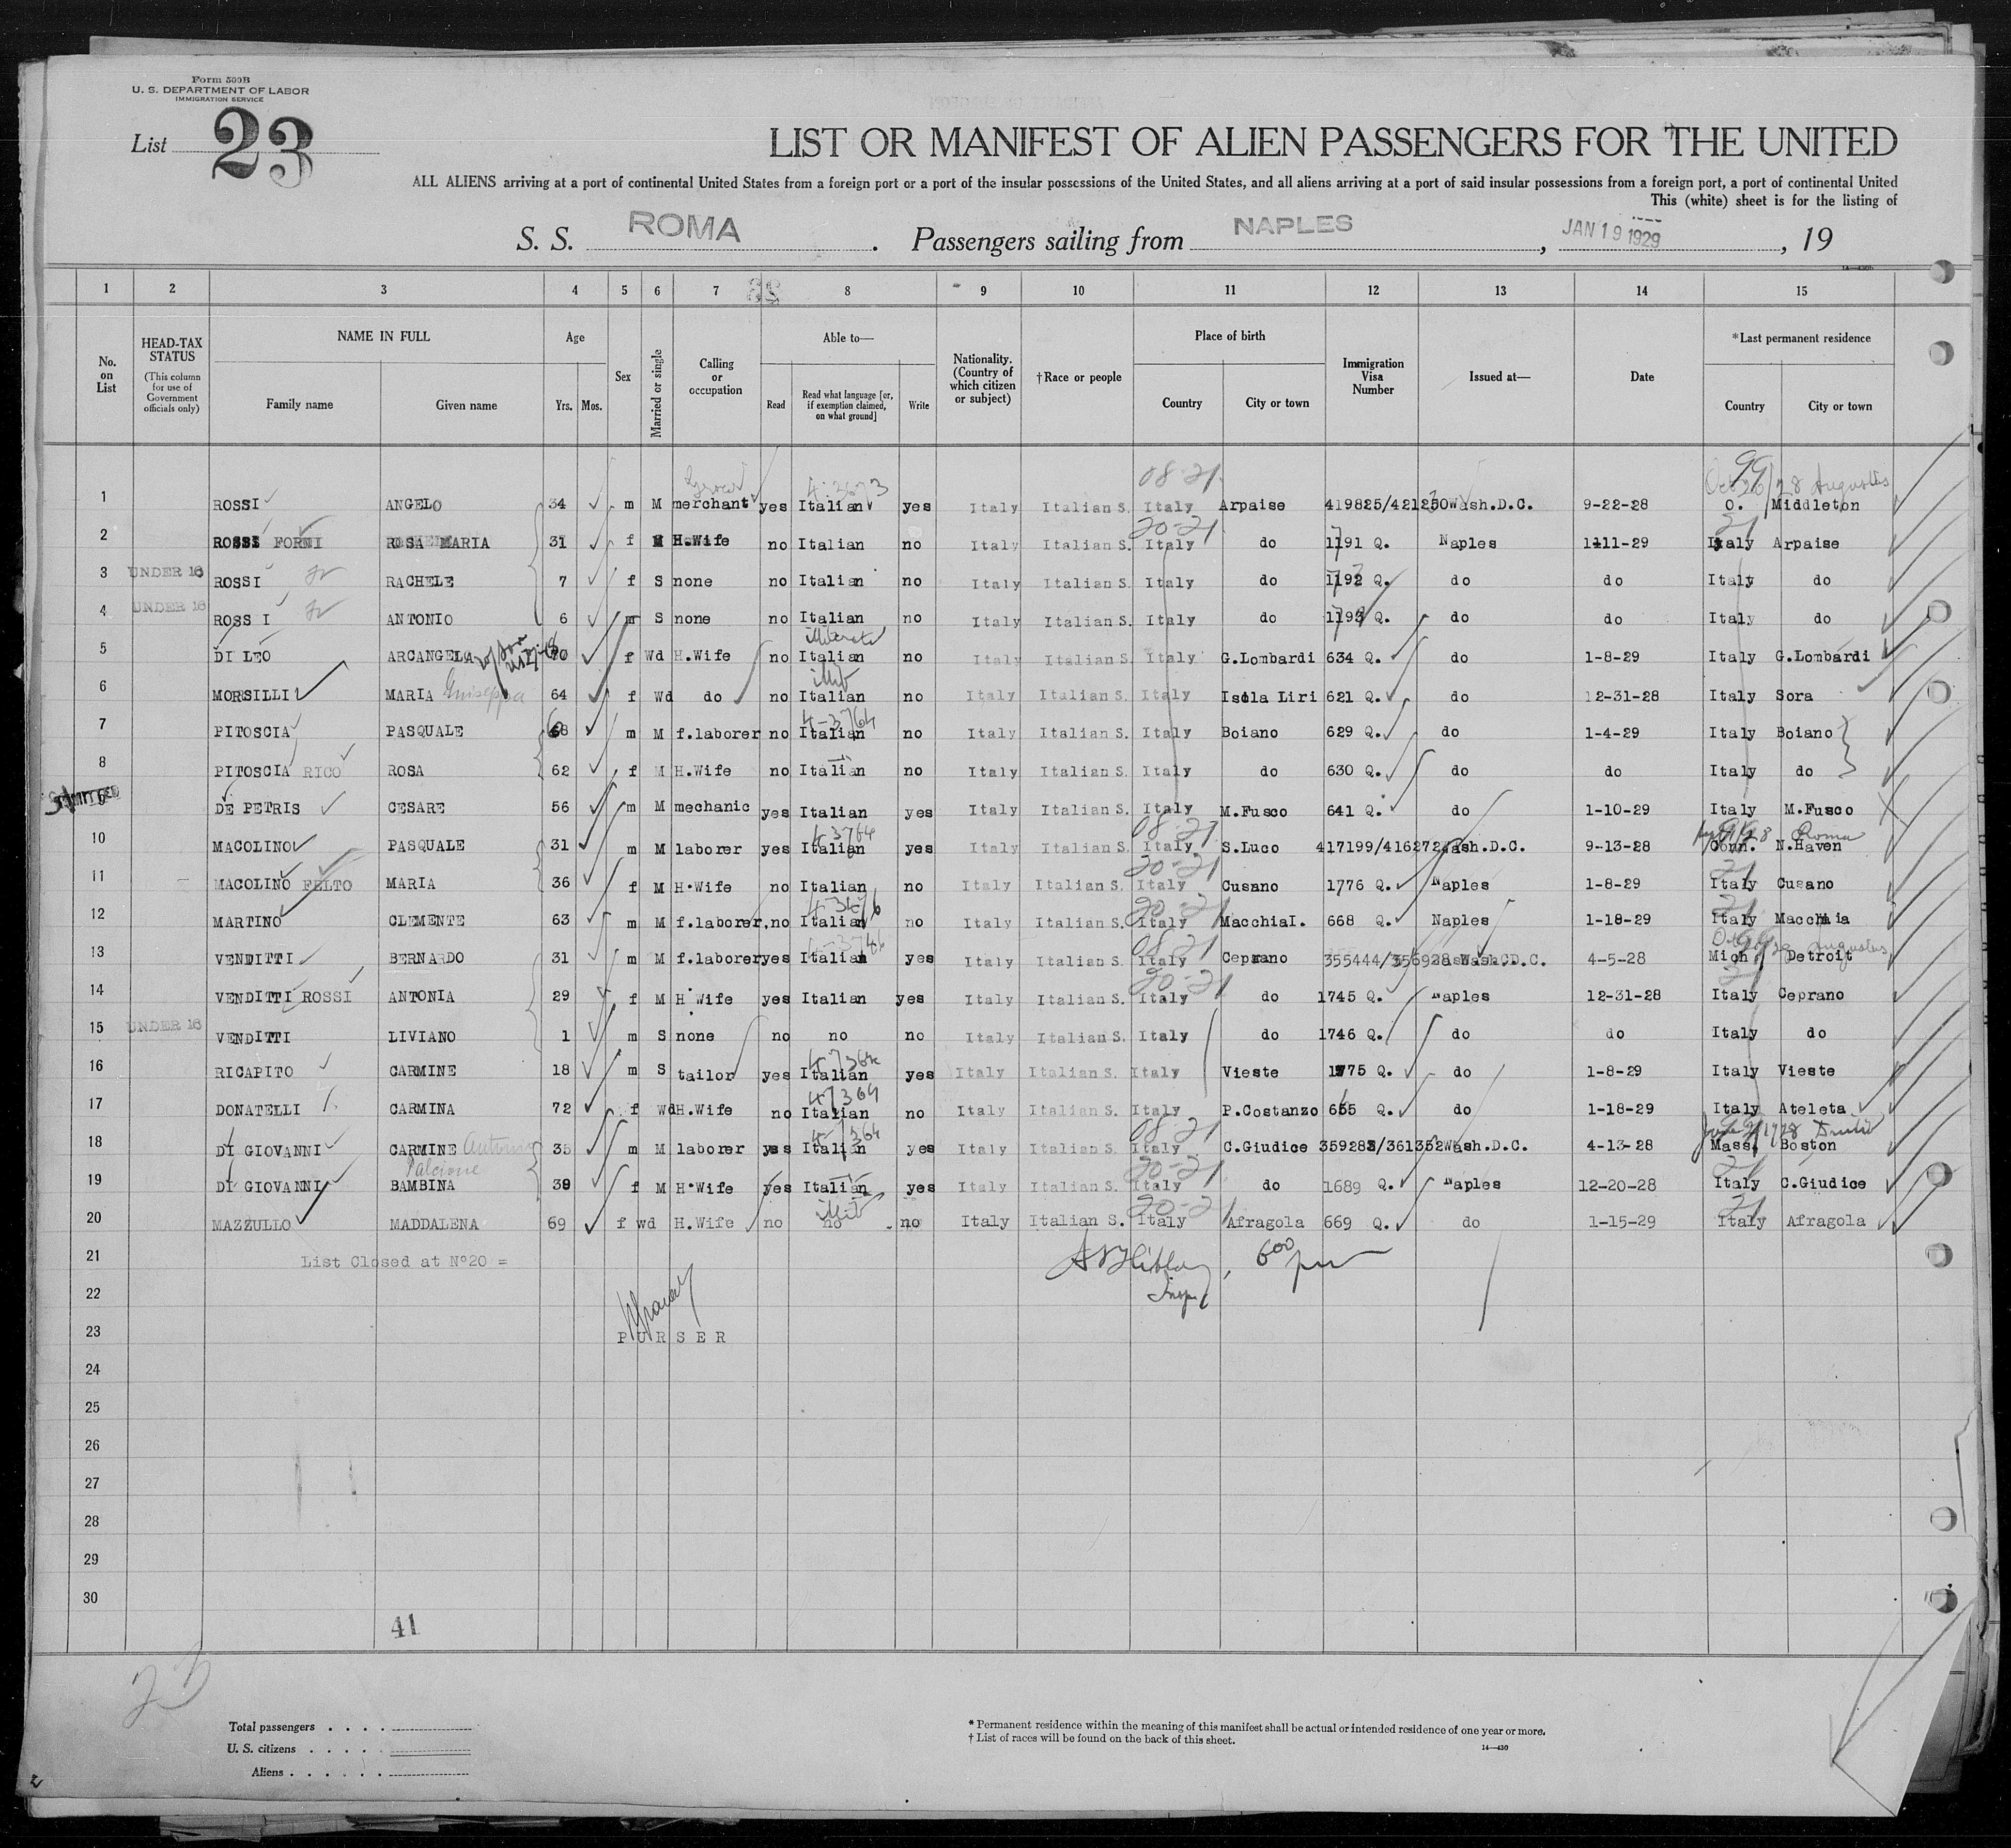 Form 500B
U. S. DEPARTMENT OF LABOR
IMMIGRATION SERVICE
List 23
LIST OR MANIFEST OF ALIEN PASSENGERS FOR THE UNITED
ALL ALIENS arriving at a port of continental United States from a foreign port or a port of the insular possessions of the United States, and all aliens arriving at a port of said insular possessions from a foreign port, a port of continental United
This (white) sheet is for the listing of
S. S. ROMA . Passengers sailing from NAPLES , JAN 19 1929 , 19
1 2 3 4 5 6 7 8 9 10 11 12 13 14 15
No. on List
HEAD-TAX STATUS (This column for use of Government officials only)
NAME IN FULL Family name Given name
Age Yrs. Mos.
Sex
Married or single
Calling or occupation
Able to— Read Read what language [or, if exemption claimed, on what ground] Write
Nationality. (Country of which citizen or subject)
†Race or people
Place of birth Country City or town
Immigration Visa Number
Issued at—
Date
*Last permanent residence Country City or town
08-21 99 Augustus
1 ROSSI ANGELO 34 m M merchant yes Italian yes Italy Italian S. Italy Arpaise 419825/421250 Wash.D.C. 9-22-28 O. Middleton
20-21 21
2 ROSSI FORNI ROSA MARIA 31 f M H.Wife no Italian no Italy Italian S. Italy do 1191 Q. Naples 1-11-29 Italy Arpaise
3 UNDER 16 ROSSI RACHELE 7 f S none no Italian no Italy Italian S. Italy do 1192 Q. do do Italy do
4 UNDER 16 ROSSI ANTONIO 6 m S none no Italian no Italy Italian S. Italy do 1193 Q. do do Italy do
illiterate
5 DI LEO ARCANGELA 70 f Wd H.Wife no Italian no Italy Italian S. Italy G.Lombardi 634 Q. do 1-8-29 Italy G.Lombardi
illit
6 MORSILLI MARIA Guiseppa 64 f Wd do no Italian no Italy Italian S. Italy Isola Liri 621 Q. do 12-31-28 Italy Sora
4-3764
7 PITOSCIA PASQUALE 68 m M f.laborer no Italian no Italy Italian S. Italy Boiano 629 Q. do 1-4-29 Italy Boiano
8 PITOSCIA RICO ROSA 62 f M H.Wife no Italian no Italy Italian S. Italy do 630 Q. do do Italy do
DE PETRIS CESARE 56 m M mechanic yes Italian yes Italy Italian S. Italy M.Fusco 641 Q. do 1-10-29 Italy M.Fusco
4 3764 08-21 Roma
10 MACOLINO PASQUALE 31 m M laborer yes Italian yes Italy Italian S. Italy S.Luco 417199/416272 Wash.D.C. 9-13-28 Conn. N.Haven
20-21 21
11 MACOLINO FELTO MARIA 36 f M H.Wife no Italian no Italy Italian S. Italy Cusano 1776 Q. Naples 1-8-29 Italy Cusano
20-21 21
12 MARTINO CLEMENTE 63 m M f.laborer, no Italian no Italy Italian S. Italy MacchiaI. 668 Q. Naples 1-18-29 Italy Macchia
08-21 Augustus
13 VENDITTI BERNARDO 31 m M f.laborer yes Italian yes Italy Italian S. Italy Ceprano 355444/356928 Wash.D.C. 4-5-28 Mich Detroit
20-21 21
14 VENDITTI ROSSI ANTONIA 29 f M H Wife yes Italian yes Italy Italian S. Italy do 1745 Q. Naples 12-31-28 Italy Ceprano
15 UNDER 16 VENDITTI LIVIANO 1 m S none no no no Italy Italian S. Italy do 1746 Q. do do Italy do
16 RICAPITO CARMINE 18 m S tailor yes Italian yes Italy Italian S. Italy Vieste 1775 Q. do 1-8-29 Italy Vieste
17 DONATELLI CARMINA 72 f Wd H.Wife no Italian no Italy Italian S. Italy P.Costanzo 665 Q. do 1-18-29 Italy Ateleta
08-21
18 DI GIOVANNI CARMINE Antonio 35 m M laborer yes Italian yes Italy Italian S. Italy C.Giudice 359283/361352 Wash.D.C. 4-13-28 Mass. Boston
20-21 21
19 DI GIOVANNI BAMBINA 39 f M H.Wife yes Italian yes Italy Italian S. Italy do 1689 Q. Naples 12-20-28 Italy C.Giudice
illit 20-21 21
20 MAZZULLO MADDALENA 69 f wd H.Wife no no no Italy Italian S. Italy Afragola 669 Q. do 1-15-29 Italy Afragola
21 List Closed at N°20 =
600 pm
22 Insp
23 PURSER
24
25
26
27
28
29
30
41
23
Total passengers . . . .
U. S. citizens . . . . .
Aliens . . . . . .
* Permanent residence within the meaning of this manifest shall be actual or intended residence of one year or more.
† List of races will be found on the back of this sheet.
14—430